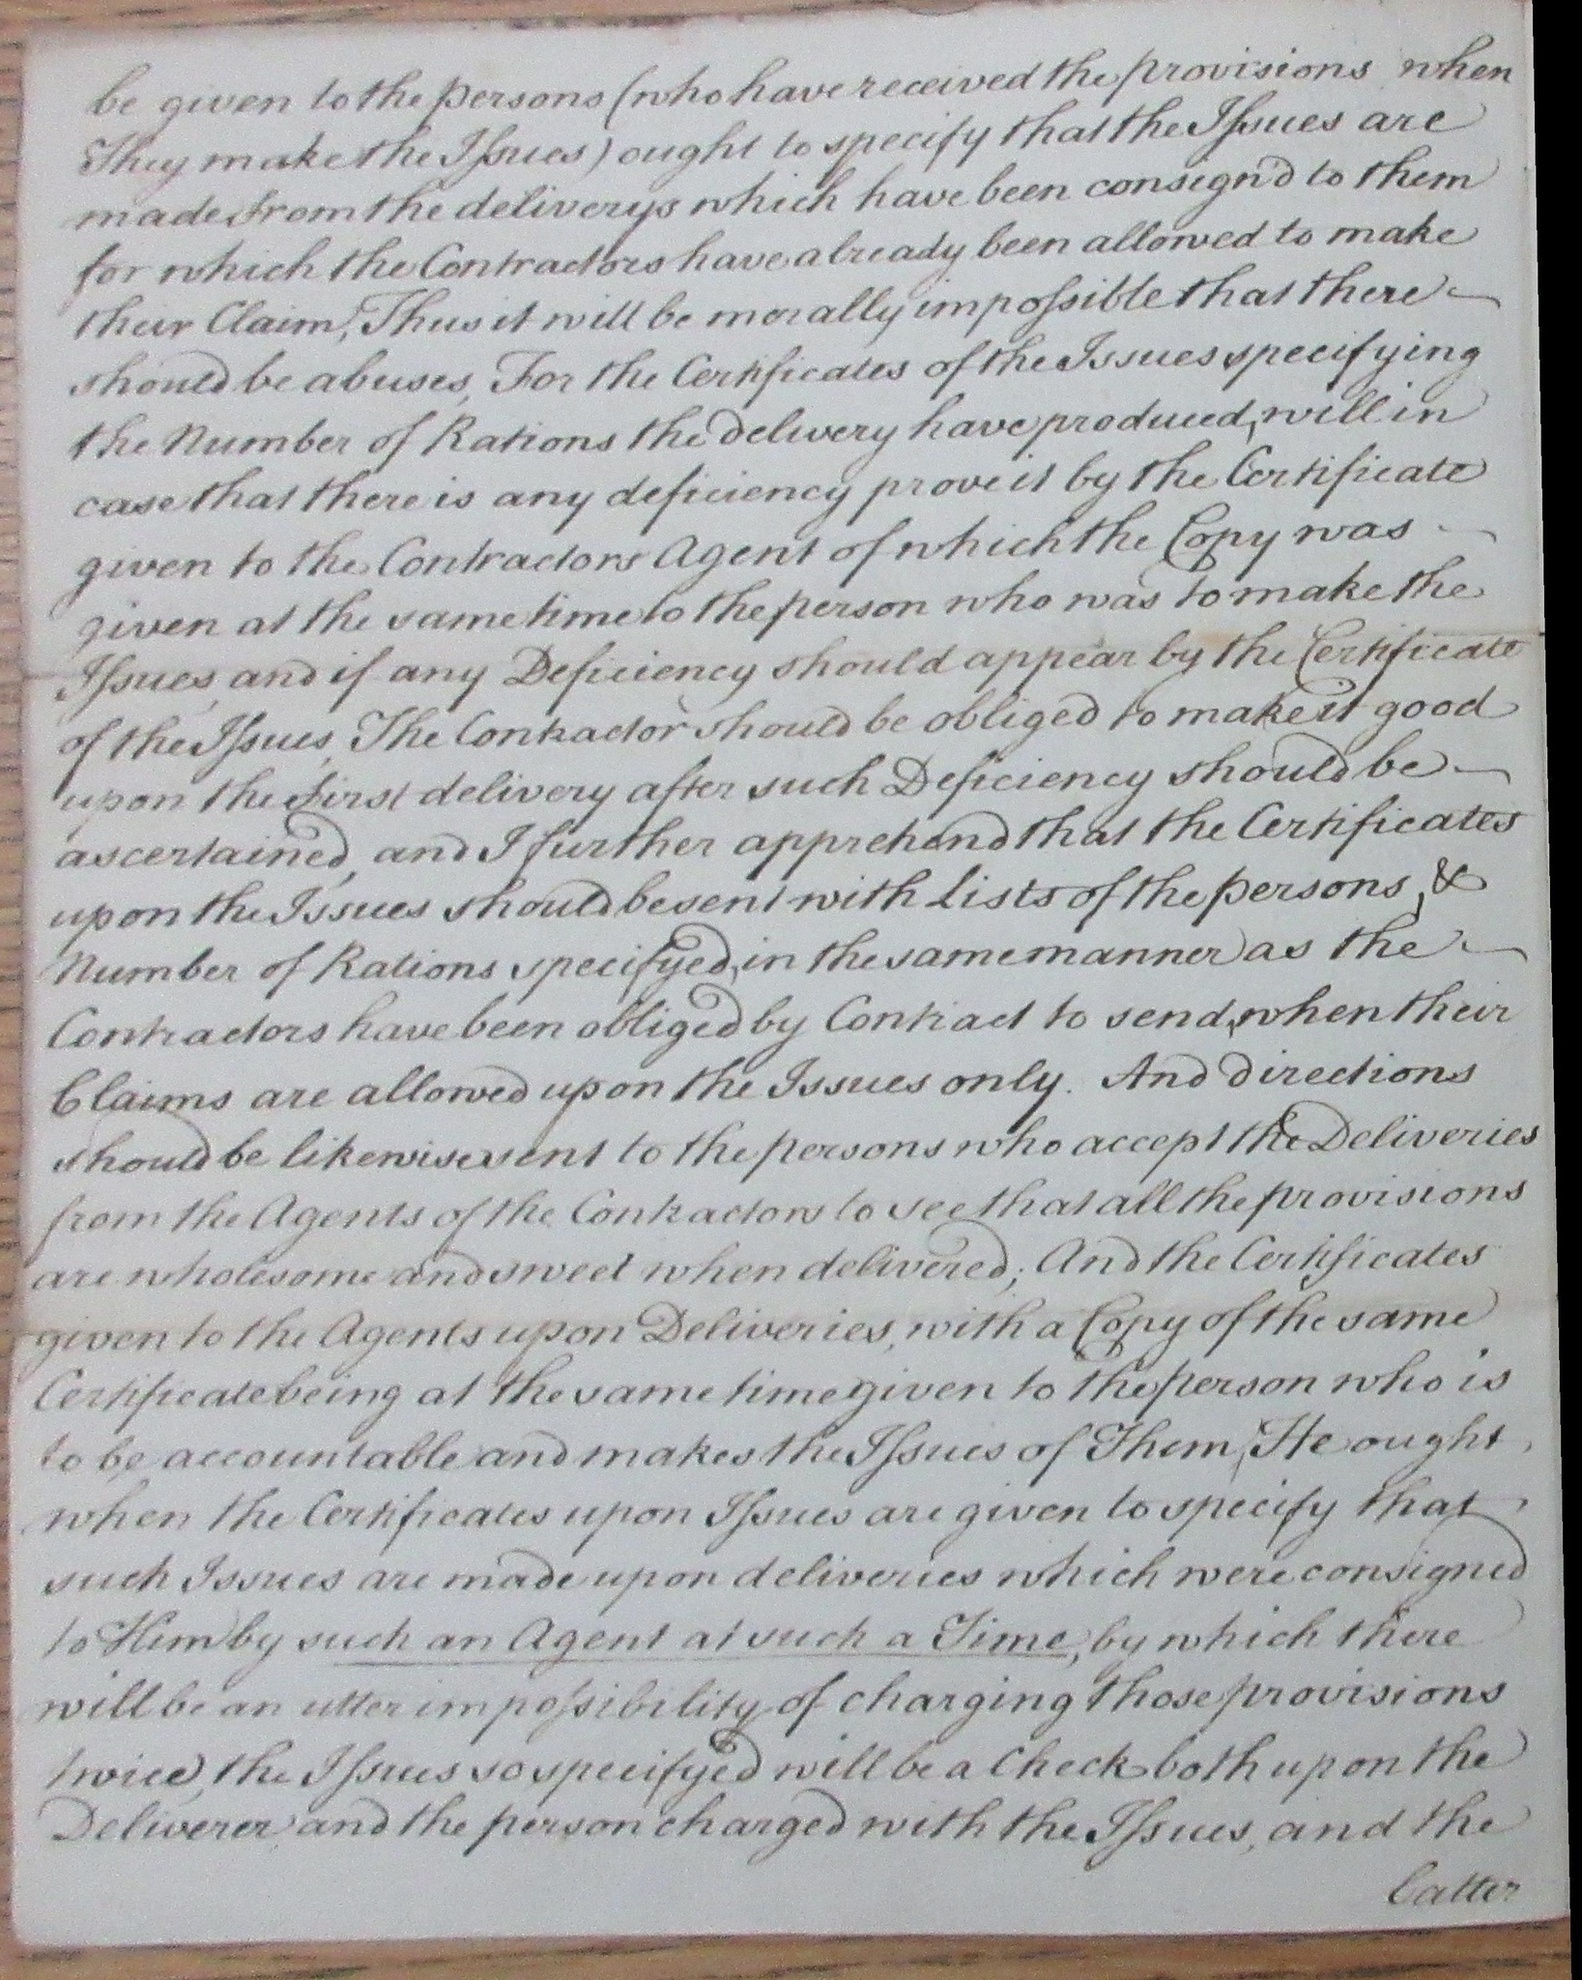 be given to the persons (who have received the provisions when
They make the Issues) ought to specify that the Issues are
made from the deliverys which have been consign'd to them
for which the Contractors have already been allowed to make
their Claim, Thus it will be morally impossible that there
should be abuses, For the Certificates of the Issues specifying
the Number of Rations the delivery have produced, will in
case that there is any deficiency prove it by the Certificate
given to the Contractors Agent of which the Copy was
given at the same time to the person who was to make the
Issues, and if any Deficiency should appear by the Certificate
of the Issues, The Contractor should be obliged to make it good
upon the first delivery after such Deficiency should be
ascertained, and I further apprehend that the Certificates
upon the Issues should be sent with Lists of the persons, &
Number of Rations specifyed, in the same manner as the
Contractors have been obliged by Contract to send, when their
Claims are allowed upon the Issues only. And directions
should be likewise sent to the persons who accept the Deliveries
from the Agents of the Contractors to see that all the provisions
are wholesome and sweet when delivered; And the Certificates
given to the Agents upon Deliveries, with a Copy of the same
Certificate being at the same time given to the person who is
to be accountable and makes the Issues of Them, He ought,
when the Certificates upon Issues are given to specify that
such Issues are made upon deliveries which were consigned
to Him by such an Agent at such a Time, by which there
will be an utter impossibility of charging those provisions
twice, the Issues so specifyed will be a Check both upon the
Deliverer and the person charged with the Issues, and the
Latter